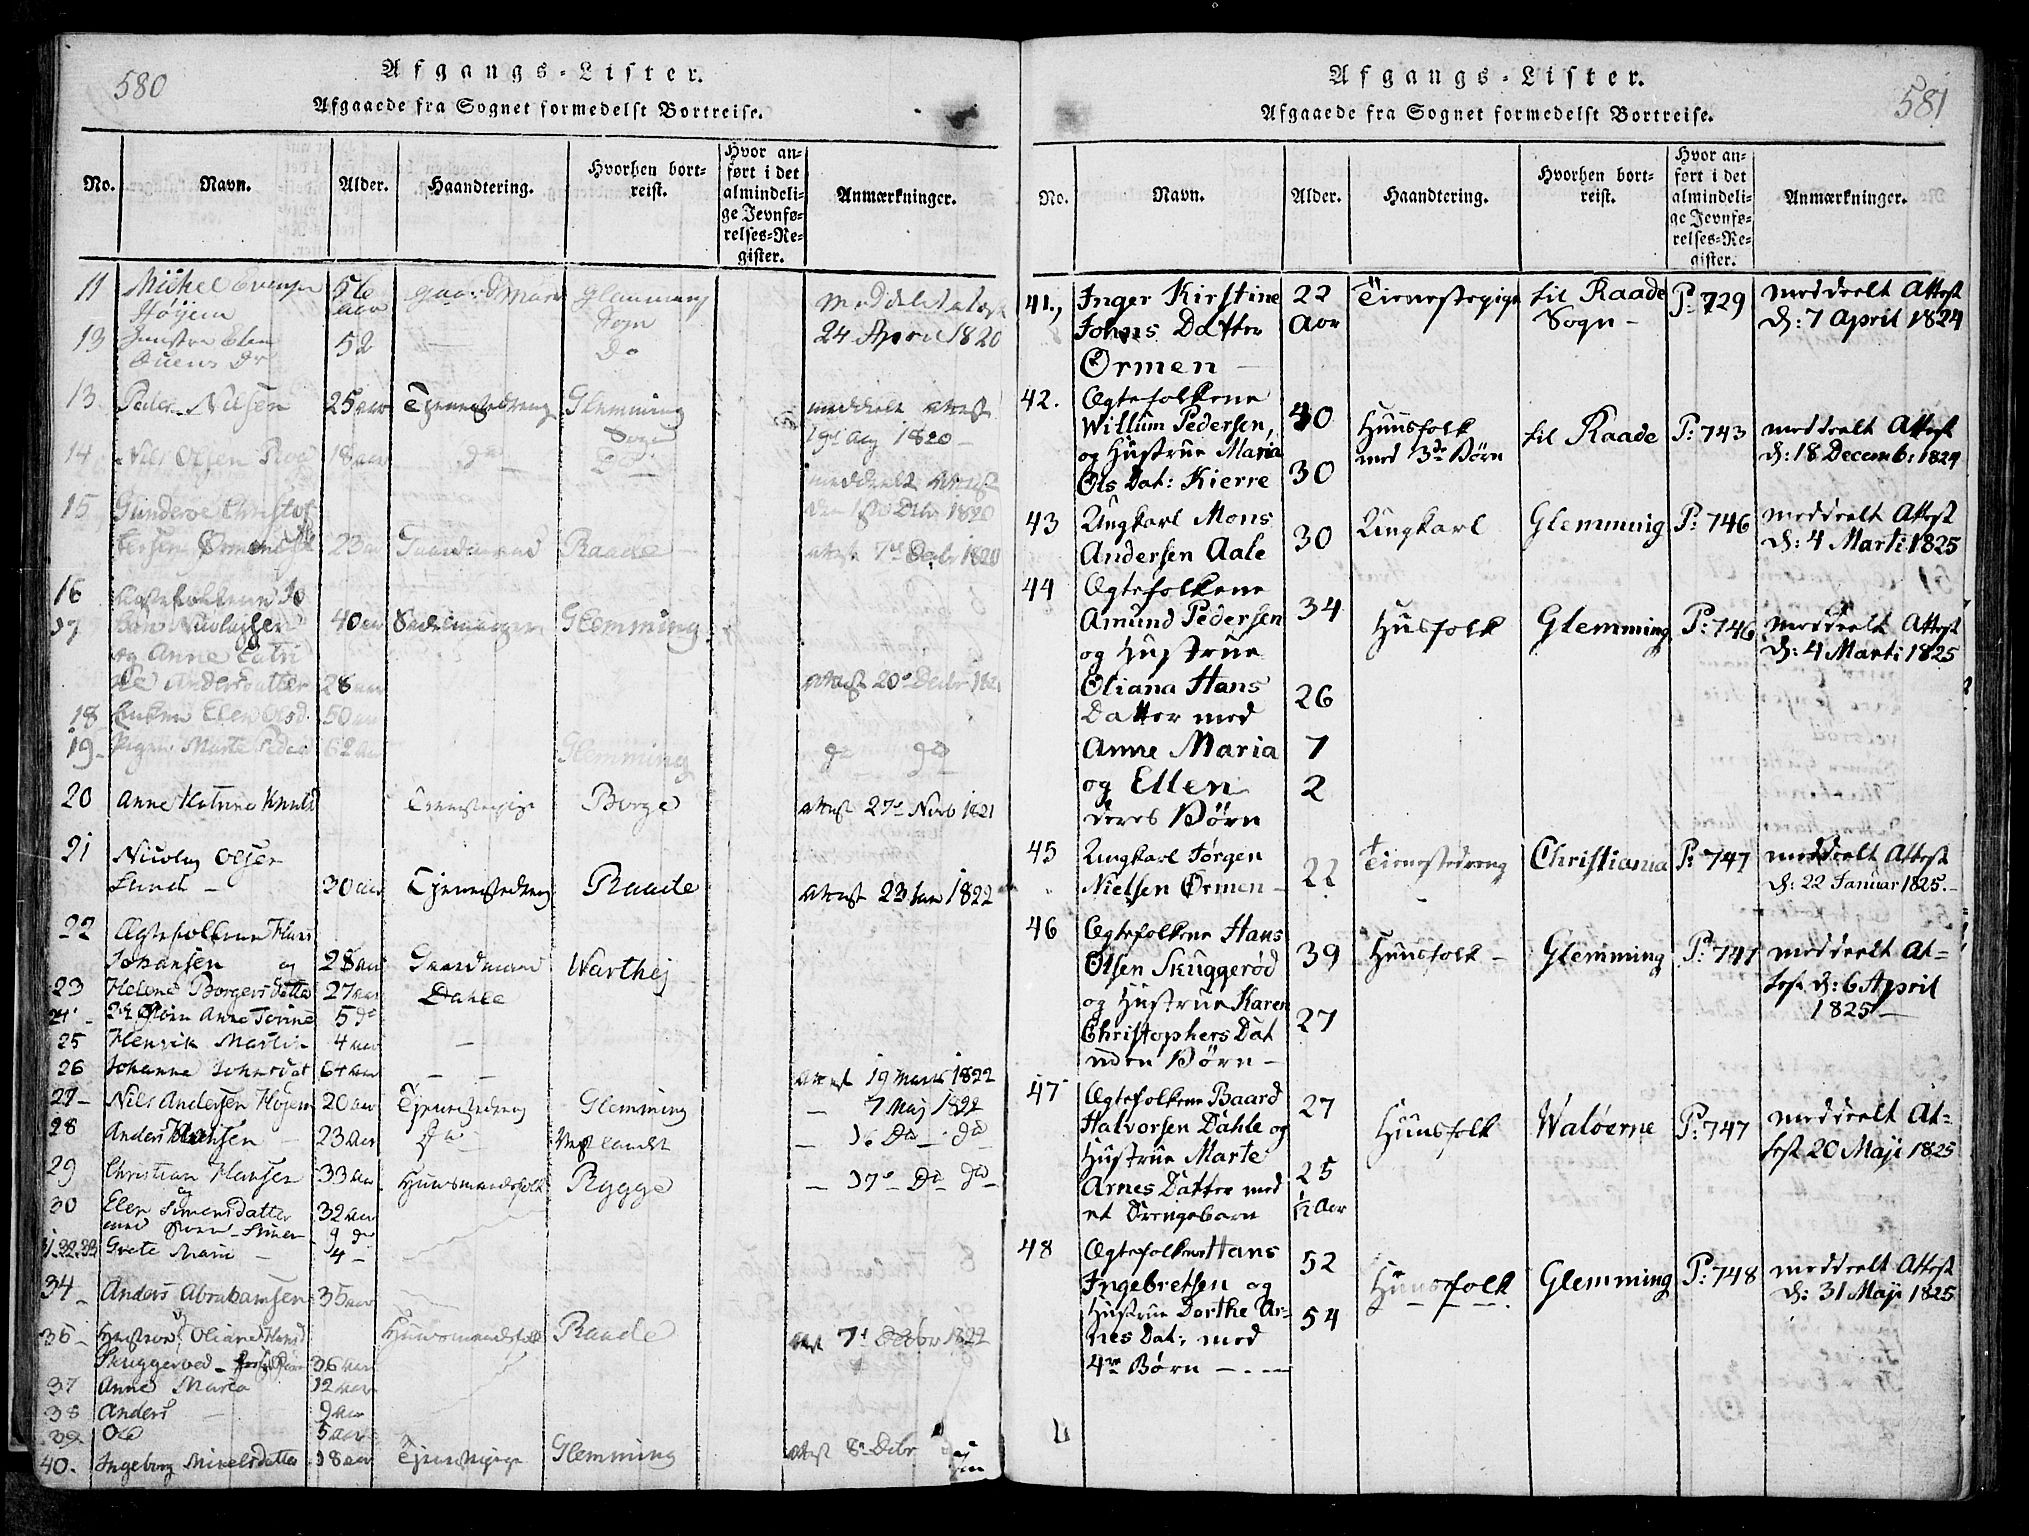 580
Afgangs-Lister.
Afgaaede fra Sognet formedelst Bortreise.
No. Navn. Alder. Haandtering. Hvorhen bortreist. Hvor anført i det almindelige Jevnførelses-Register. Anmærkninger.
11 Michel Evensen 56 gaardmand Glemming
Høyem aar Sogn
24 April 1820
13 52 Do
13 Peder Nilsen 25 aar Tjenestedreng Glemming meddelt Attest
Sogn 19d Aug 1820
14 Nils Olsen 18 aar do Do meddeelt Attest
15 Gunderoe Christof
fersen 23 aar Gaardmand Raade Attest 7d Debr 1820
16 Ægtefolkene
17 Nicolaysen 40 aar Glemming
og Anne Catri
ne Andersdatter 28 aar Attest 20d Debr 1821
18 Enken Elen Olsd. 50 aar
19 Pigen Marte 62 aar Glemming do do
20 Anne Katrine Knutsd Tienestepige Borge Attest 27d Novb 1821
21 Nicolay Olsen
Lund 30 aar Tjenestedreng Raade Attest 23 Jan 1822
22 Ægtefolkene Hans
Johansen og 28 aar Gaardmand Warthej
23 Helene Borgersdatter 27 aar Dahle
24 Børn Anne Torine 5 do
25 Henrik Martin 4 aar
26 Johanne Johnsdat 64 aar Attest 19 Marts 1822
27 Nils Andersen Høyem 20 aar Tjenestedreng Glemming 7 Maj 1822
28 Anders Hansen 23 aar do Vestlandet 16 Do do
29 Christian Hansen 33 aar Huusmandsfolk Rygge 17d Do do
og
30 Elen Simensdatter 32 aar
med Børn Simen 9 do
31.32.33 Grete Marie 4
34 Anders Abrahamsen 35 aar
36 Hustroe Oliane Hansd Huusmandsfolk Raade Att 7d Debr 1822
Skuggerød 36 aar
37 Anne Maria 12 aar
38 Anders 9 aar
39 Ole 5 aar
40. Ingeborg Mikelsdatter 18 aar Tjenestepige Glemming Attest 8d Debr
581
Afgangs-Lister.
Afgaaede fra Sognet formedelst Bortreise.
No. Navn. Alder. Haandtering. Hvorhen bortreist. Hvor anført i det almindelige Jevnførelses-Register. Anmærkninger.
41., Inger Kirstine 22 Tienestepige til Raade P: 729 meddeelt Attest
Johns Datter Aar Sogn d: 7 April 1824
Ørmen
42. Ægtefolkene
Willum Pedersen, 40 Huusfolk til Raade P: 743 meddeelt Attest
og Hustrue Maria med 3de Børn d: 18 Decemb: 1824
Ols Dat: Kierre 30
43 Ungkarl Mons 30 Ungkarl Glemming P: 746 meddeelt Attest
Andersen Aale d: 4 Marti 1825
44 Ægtefolkene
Amund Pedersen 34 Husfolk Glemming P: 746 meddeelt Attest
og Hustrue d: 4 Marti 1825
Oliana Hans 26
Datter med
Anne Maria 7
og Ellen 2
deres Børn
45 Ungkarl Jørgen 22 Tienestedreng Christiania P: 747 meddeelt Attest
Nielsen Ørmen d: 22 Januar 1825.
46 Ægtefolkene Hans
Olsen Skuggerød 39 Huusfolk Glemming P: 747 meddeelt At-
og Hustrue Karen test d: 6 April
Christophers Dat 27 1825
uden Børn
47 Ægtefolkene Baard 27 Huusfolk Waløerne P: 747 meddeelt At-
Halvorsen Dahle og test 20 Maji 1825
Hustrue Marte 25
Arnes Datter med
et Drengebarn ½ Aar
48 Ægtefolkene Hans 52
Ingebretsen og Huusfolk Glemming P: 748 meddeelt Attest
Hustrue Dorthe Ar- 54 d: 31 Maji 1825
nes Dat: med
4re Børn